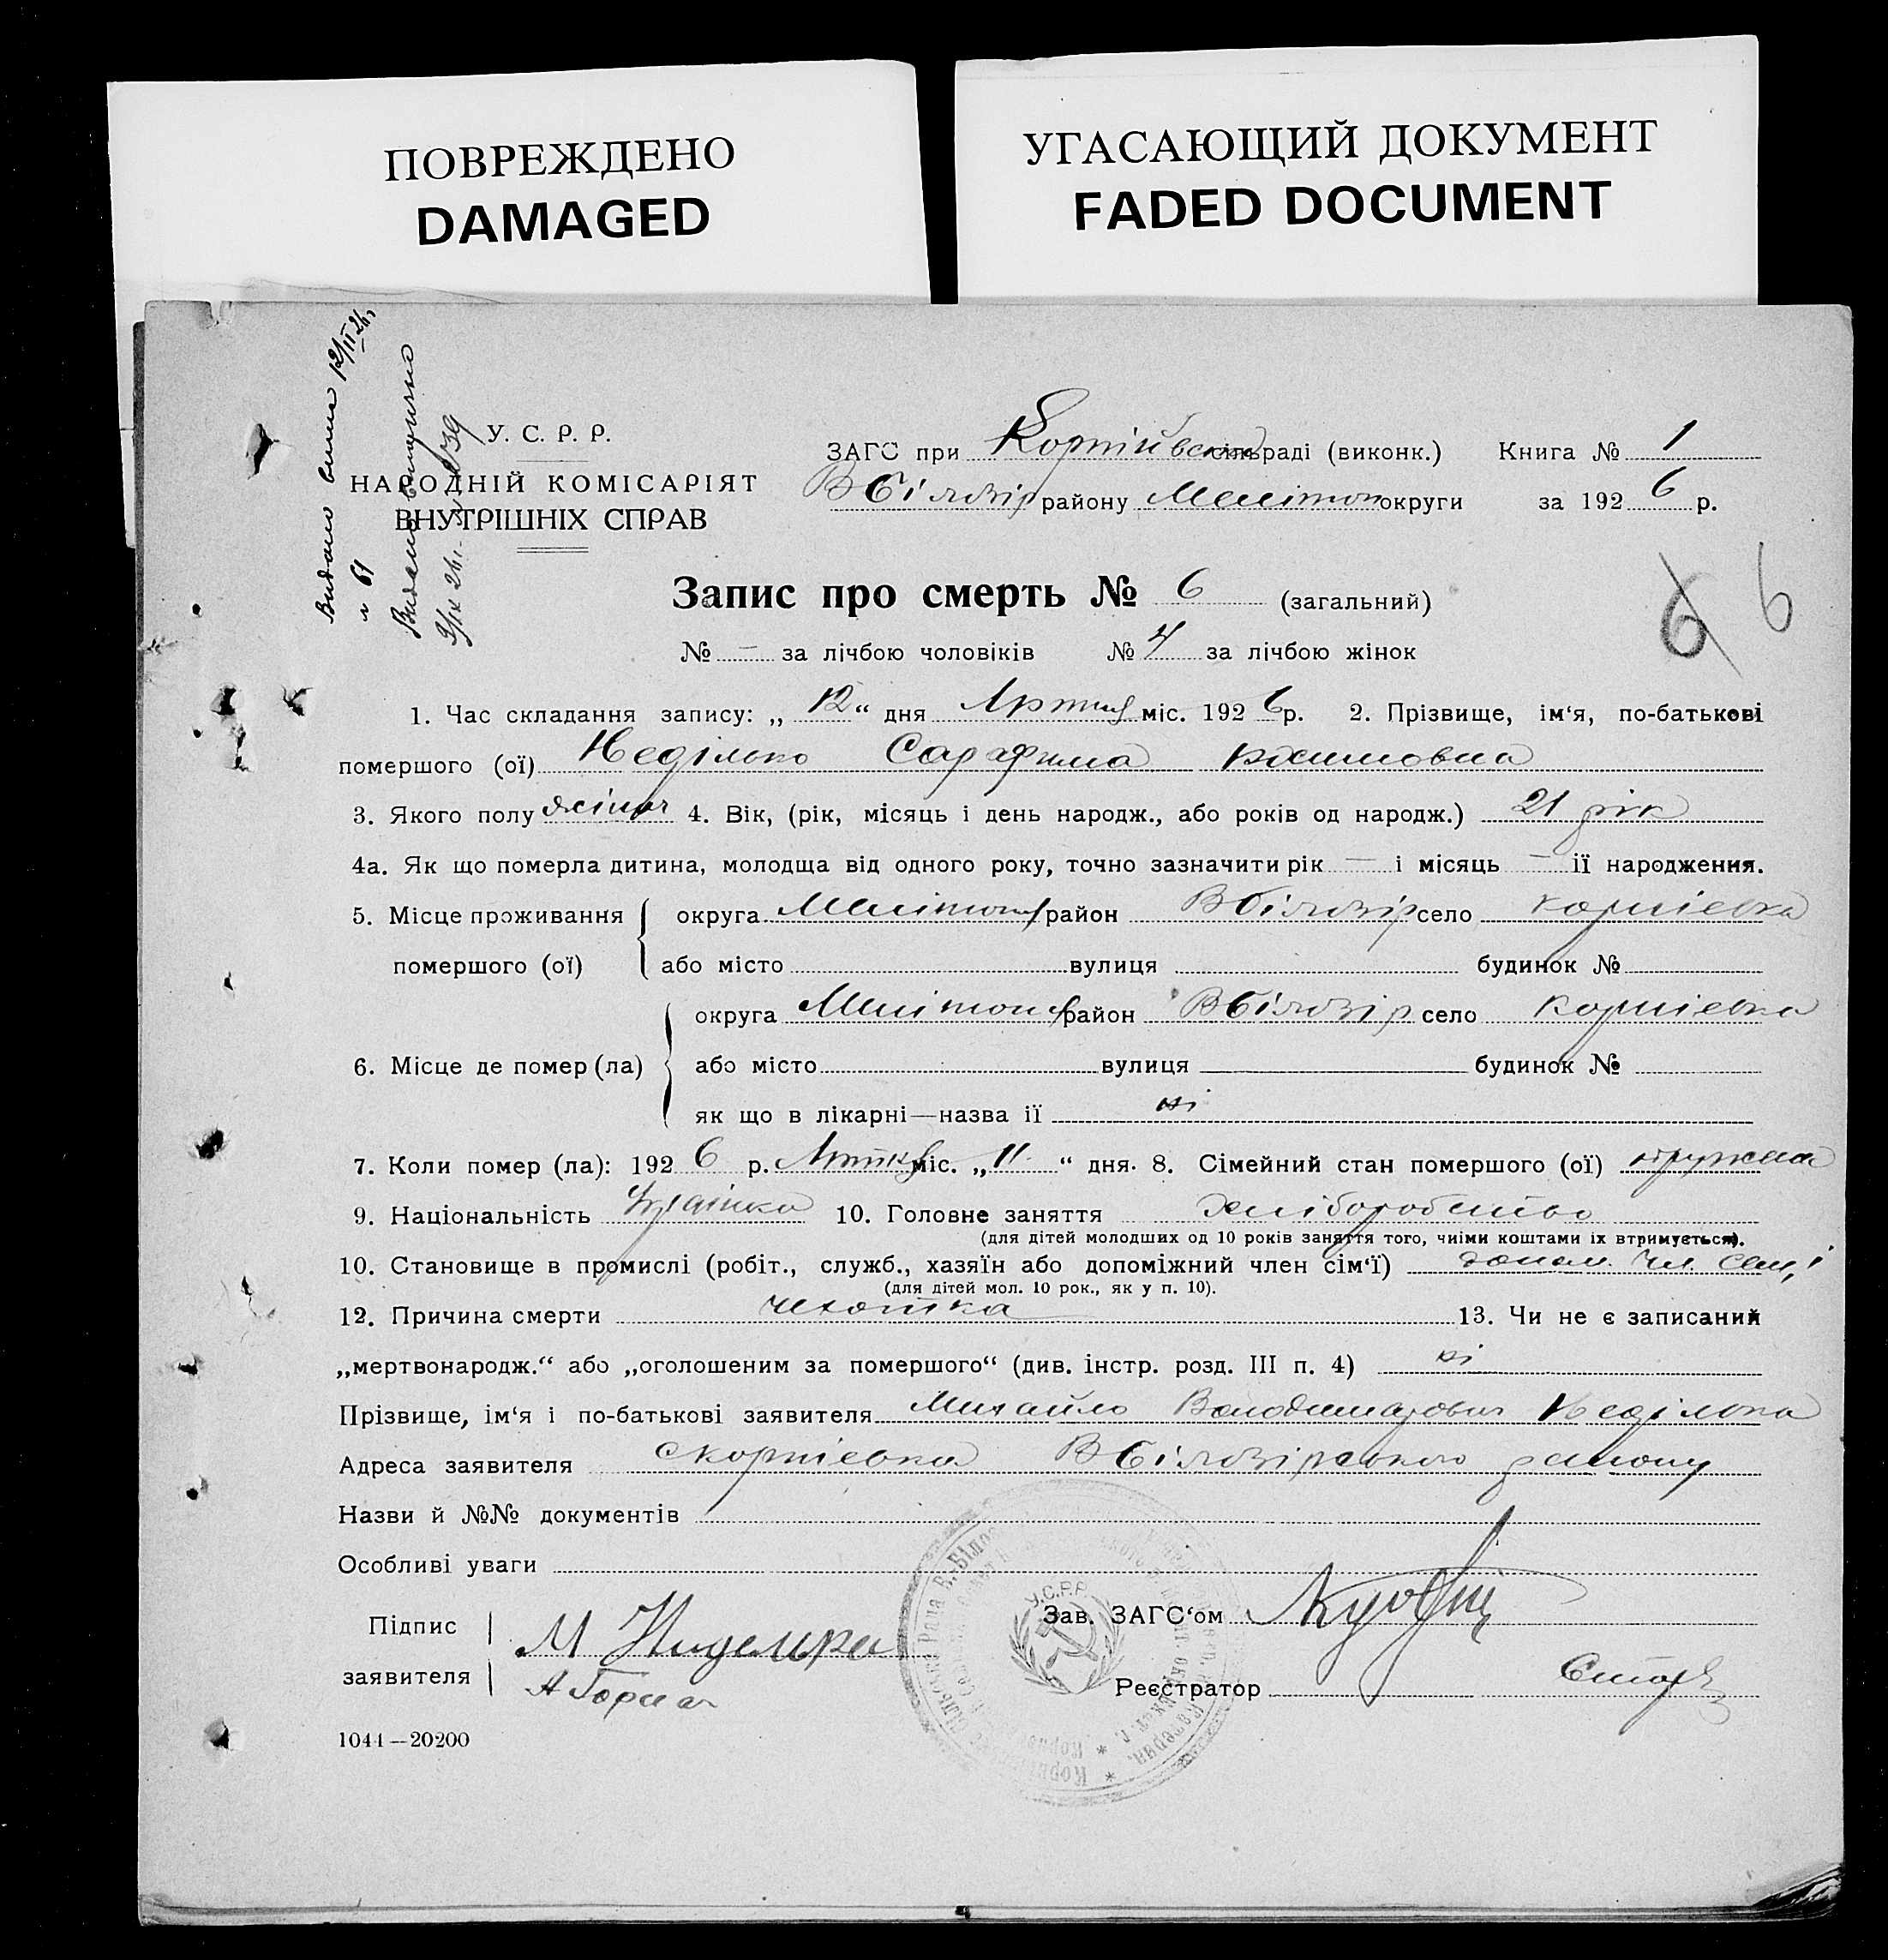 ПОВРЕЖДЕНО
DAMAGED
УГАСАЮЩИЙ ДОКУМЕНТ
FADED DOCUMENT
Видано 12/II 26
№ 61
Видано
У. С. Р. Р.
НАРОДНІЙ КОМІСАРІЯТ
ВНУТРІШНІХ СПРАВ
ЗАГС при раді (виконк.) Книга № 1
ВБілозір району Мелітоп округи за 1926 р.
Запис про смерть № 6 (загальний)
6 6
№ — за лічбою чоловіків № 4 за лічбою жінок
1. Час складання запису: „ 12 “ дня міс. 1926 р. 2. Прізвище, ім‘я, по-батькові
помершого (ої) Неділько
3. Якого полу жіноч 4. Вік, (рік, місяць і день народж., або років од народж.) 21 рік
4а. Як що померла дитина, молодща від одного року, точно зазначити рік — і місяць — ії народження.
5. Місце проживання помершого (ої) округа Мелітоп район ВБілозір село Корніевка
або місто вулиця будинок №
6. Місце де помер (ла) округа Мелітоп район ВБілозір село Корніевка
або місто вулиця будинок №
як що в лікарні—назва ії ні
7. Коли помер (ла): 1926 р. міс. „ 11 “ дня. 8. Сімейний стан помершого (ої)
9. Національність Українка 10. Головне заняття Хліборобство
(для дітей молодших од 10 років заняття того, чиїми коштами їх втримується).
10. Становище в промислі (робіт., служб., хазяїн або допоміжний член сім‘ї) допом. чл. сем,ї
(для дітей мол. 10 рок., як у п. 10).
12. Причина смерти чехотка 13. Чи не є записаний
„мертвонародж.“ або „оголошеним за помершого“ (див. інстр. розд. III п. 4) ні
Прізвище, ім‘я і по-батькові заявителя Михайло Володимирович Неділька
Адреса заявителя с Корніевка ВБілозірського району
Назви й №№ документів
Особливі уваги
У.С.Р.Р.
Підпис заявителя
М
Зав. ЗАГС‘ом
Реєстратор
1041—20200